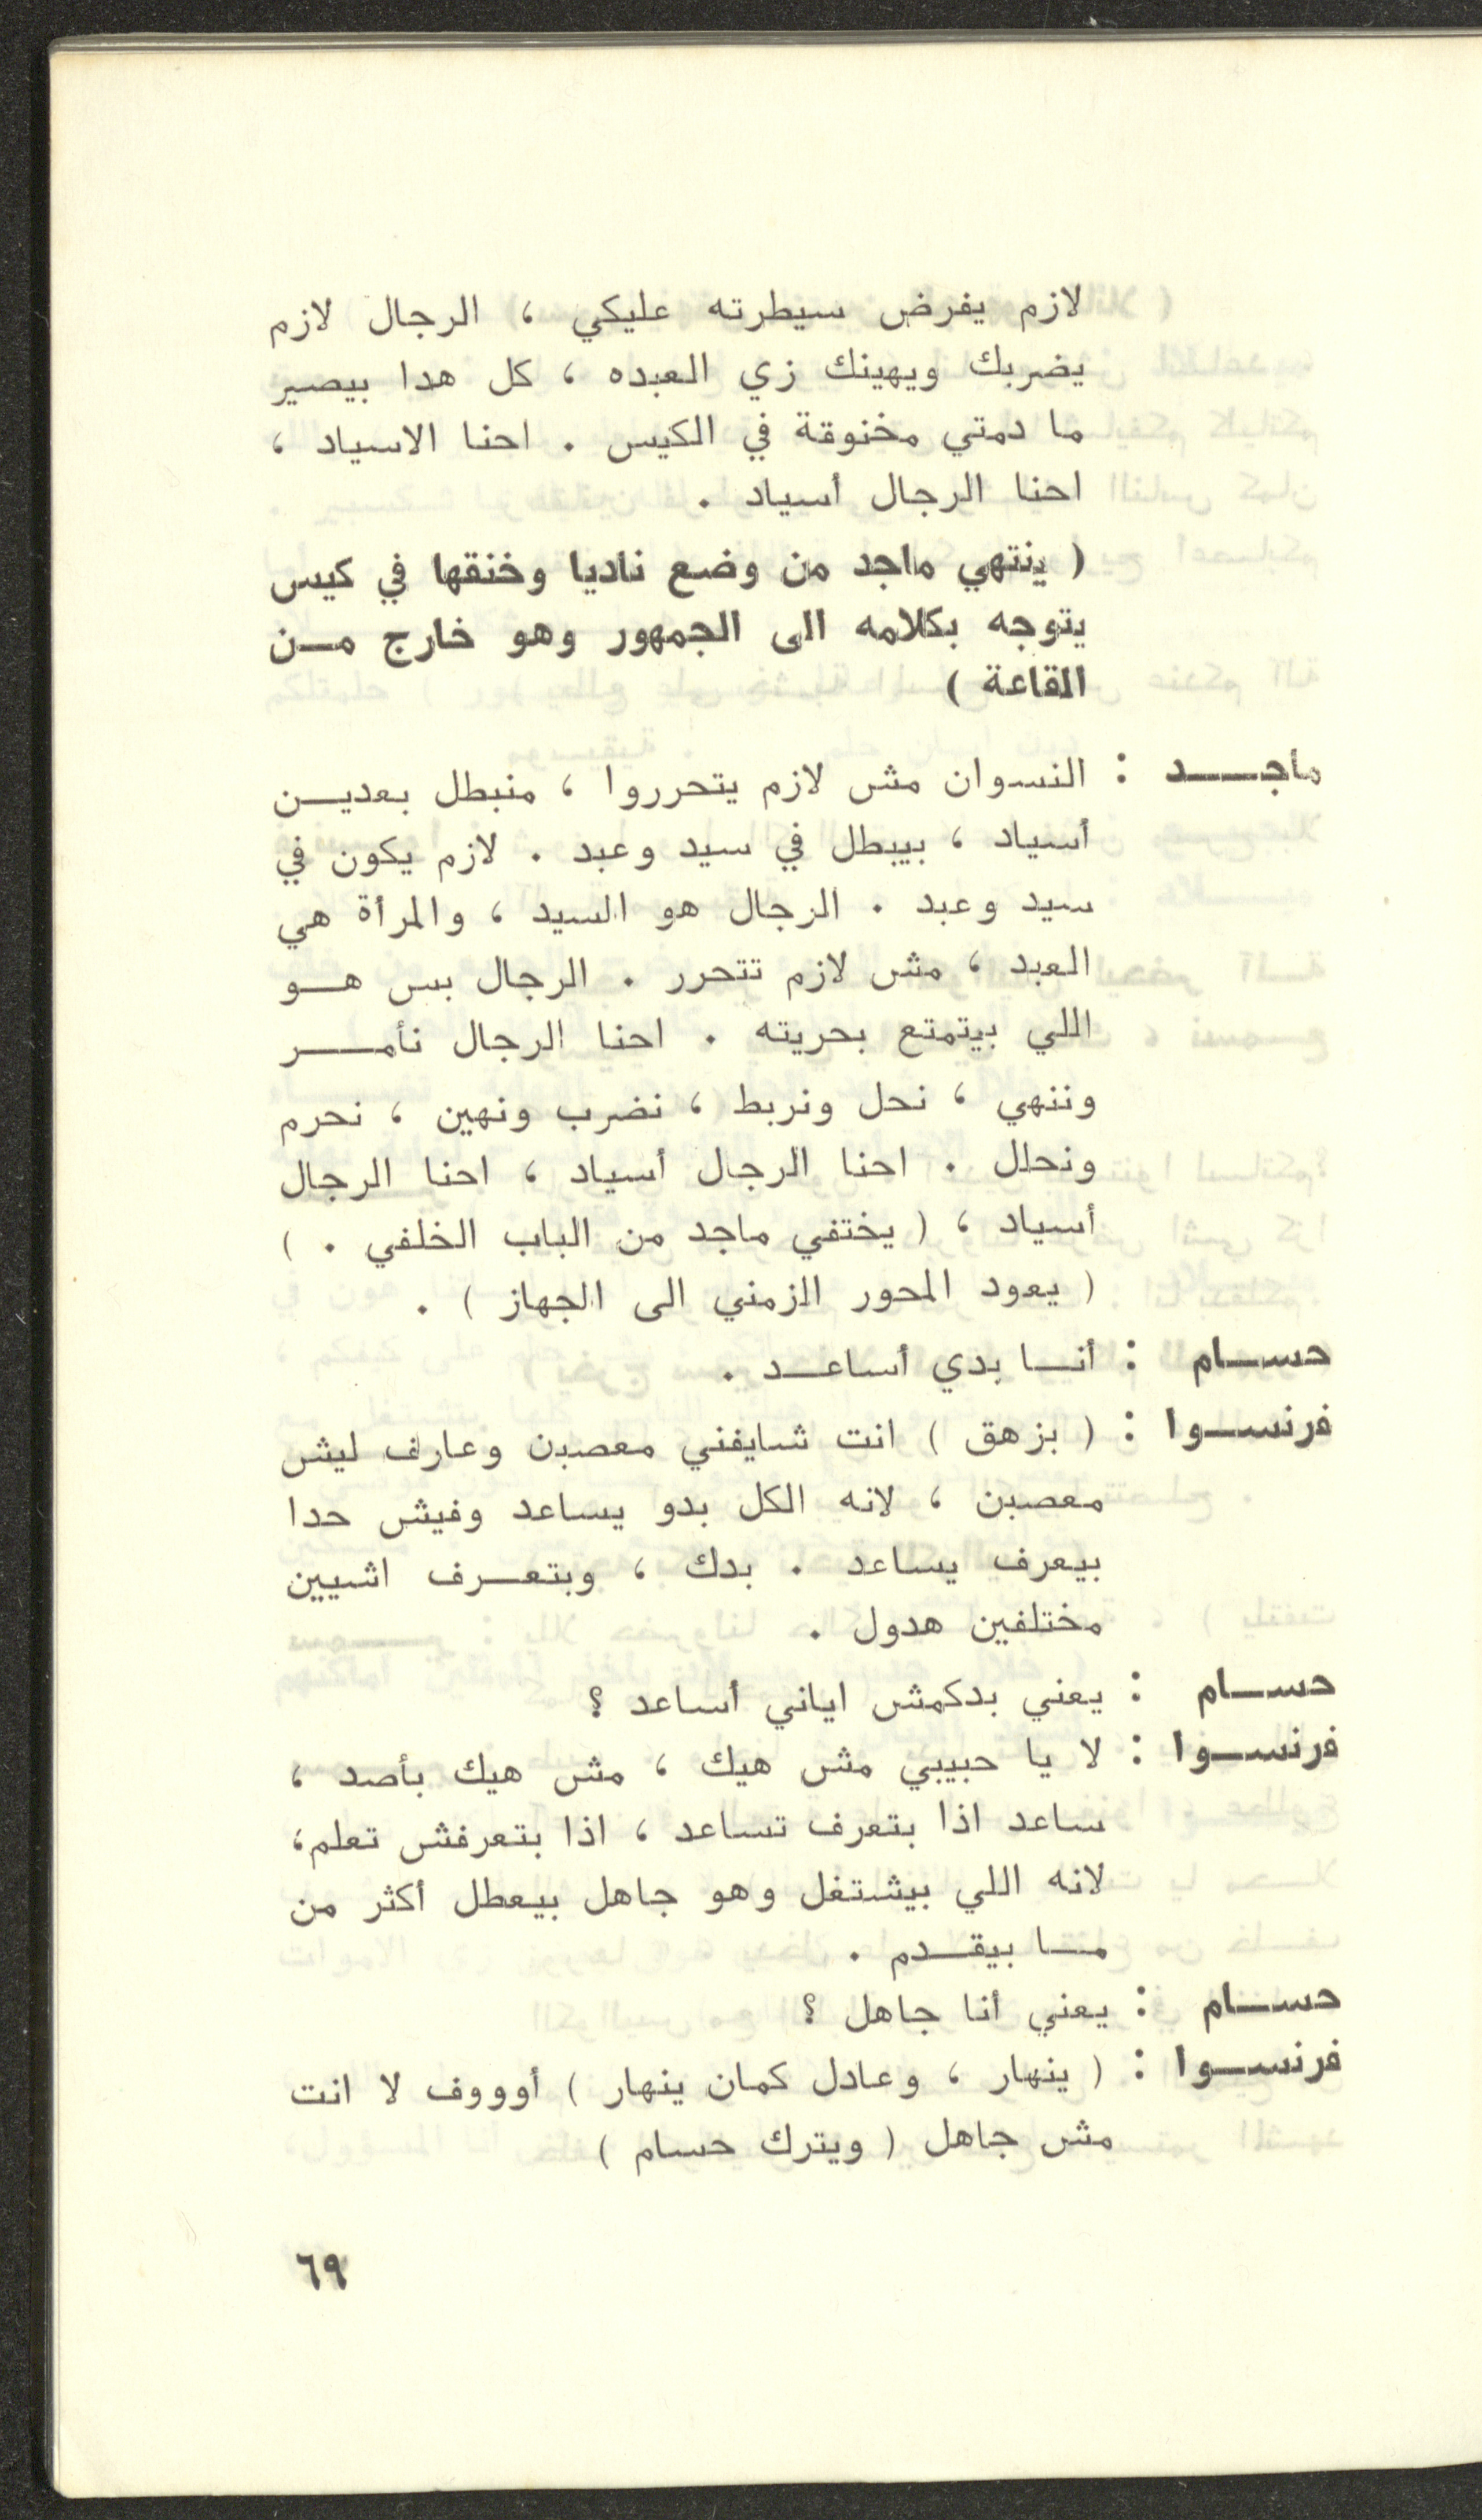 لازم يفرض سيطرته عليكي ، الرجال لازم
يضربك ويهينك زي العبده ، كل هدا بيصير
ما دمتي مخنوقة في الكيس . احنا الاسياد ،
احنا الرجال أسياد .
( ينتهي ماجد من وضع ناديا وخنقها في كيس
يتوجه بكلامه الى الجمهور وهو خارج مــن
القاعة )
ماجــــد : النسوان مش لازم يتحرروا ، منبطل بعديــن
أسياد ، بيبطل في سيد وعبد . لازم يكون في
سيد وعبد . الرجال هو السيد ، والمرأة هي
العبد ، مش لازم تتحرر . الرجال بس هــو
اللي بيتمتع بحريته . احنا الرجال نأمــــر
وننهي ، نحل ونربط ، نضرب ونهين ، نحرم
ونحلل . احنا الرجال أسياد ، احنا الرجال
أسياد ، ( يختفي ماجد من الباب الخلفي . )
( يعود المحور الزمني الى الجهاز ) .
حســـام : أنـــا بدي أساعــد .
فرنســـوا : ( بزهق ) انت شايفني معصبن وعارف ليش
معصبن ، لانه الكل بدو يساعد وفيش حدا
بيعرف يساعد . بدك ، وبتعــرف اشيين
مختلفين هدول .
حســـام : يعني بدكمش اياني أساعد ؟
فرنســـوا : لا يا حبيبي مش هيك ، مش هيك بأصد ،
ساعد اذا بتعرف تساعد ، اذا بتعرفش تعلم،
لانه اللي بيشتغل وهو جاهل بيعطل أكثر من
مــا بيقــدم .
حســـام : يعني أنا جاهل ؟
فرنســـوا : ( ينهار ، وعادل كمان ينهار ) أوووف لا انت
مش جاهل ( ويترك حسام )
٦٩